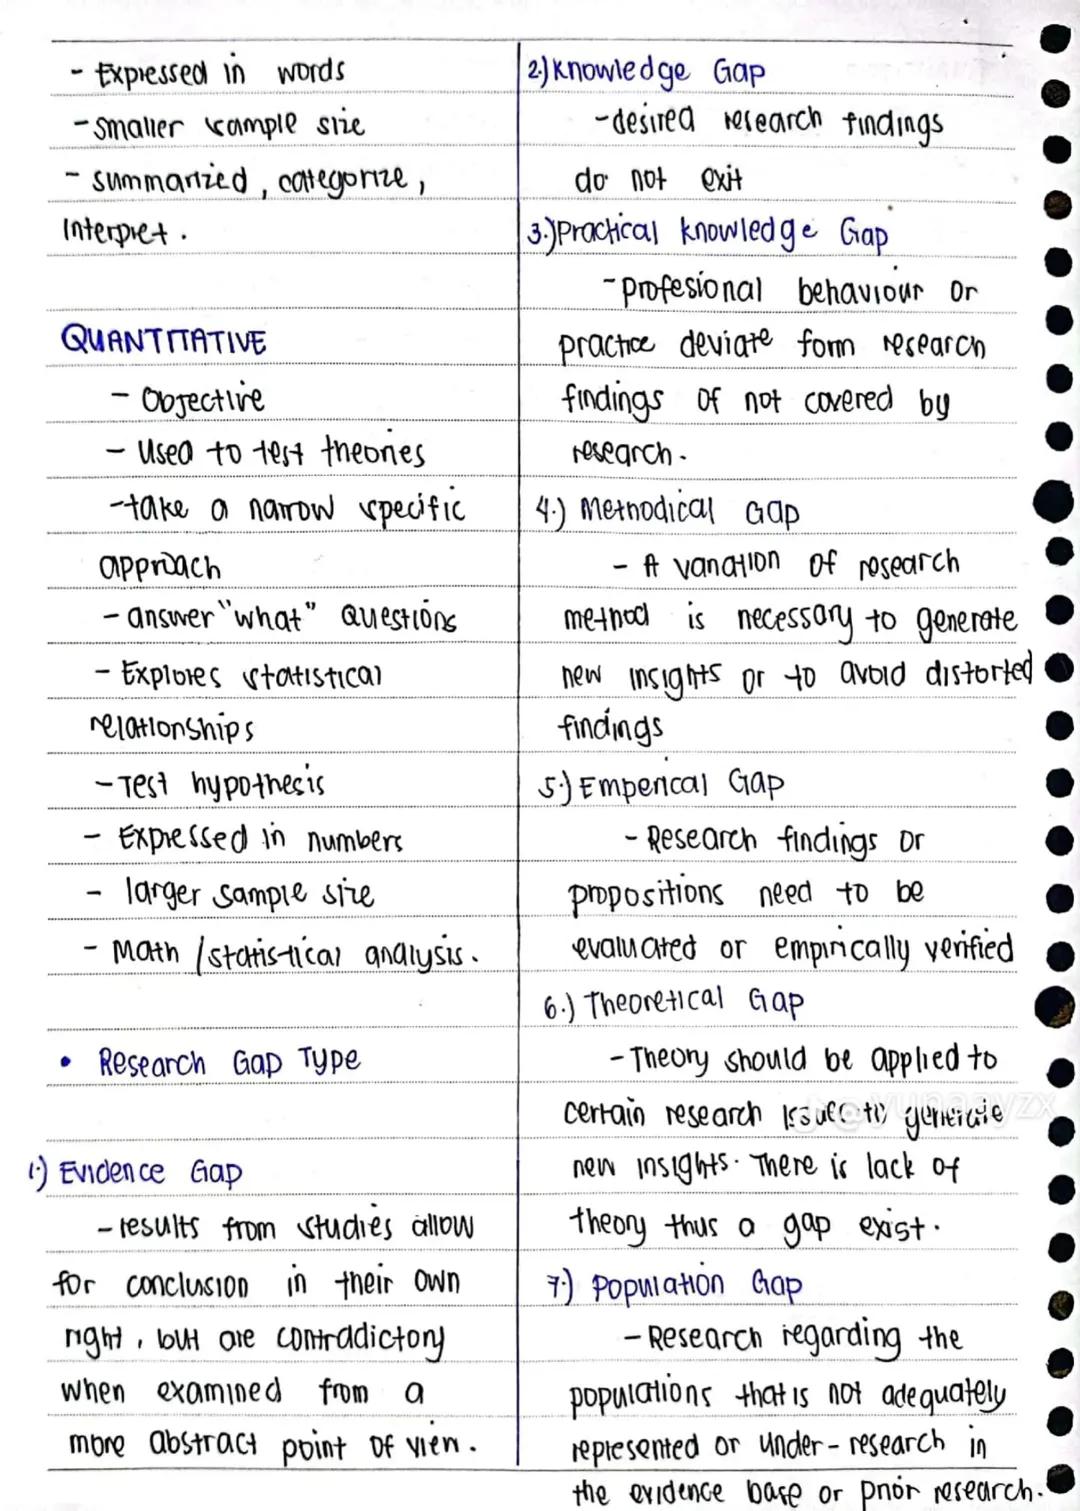 - Expressed in words
- smaller sample size
- summarized, categorize,
Interpret.
QUANTITATIVE
- Objective
- Used to test theories
- take a narrow specific
approach
- answer "what" Questions
- Explores statistical
relationships
- Test hypothesis
- Expressed in numbers
- larger sample size
- Math /statistical analysis.
• Research Gap Type
1.) Evidence Gap
- results from studies allow
for conclusion in their own
right, but are contradictory
when examined from a
more abstract point of vien.
2.) Knowledge Gap
- desired research findings
do not exit
3.) Practical knowledge Gap
- profesional behaviour or
practice deviate form research
findings of not covered by
research.
4.) Methodical Gap
- A variation of research
method is necessary to generate
new insights or to avoid distorted
findings
5.) Emperical Gap
- Research findings or
propositions need to be
evaluated or empirically verified
6.) Theoretical Gap
- Theory should be applied to
certain research issue to generate
new insights. There is lack of
theory thus a gap exist.
7.) Population Gap
- Research regarding the
populations that is not adequately
represented or under-research in
the evidence base or prior research.